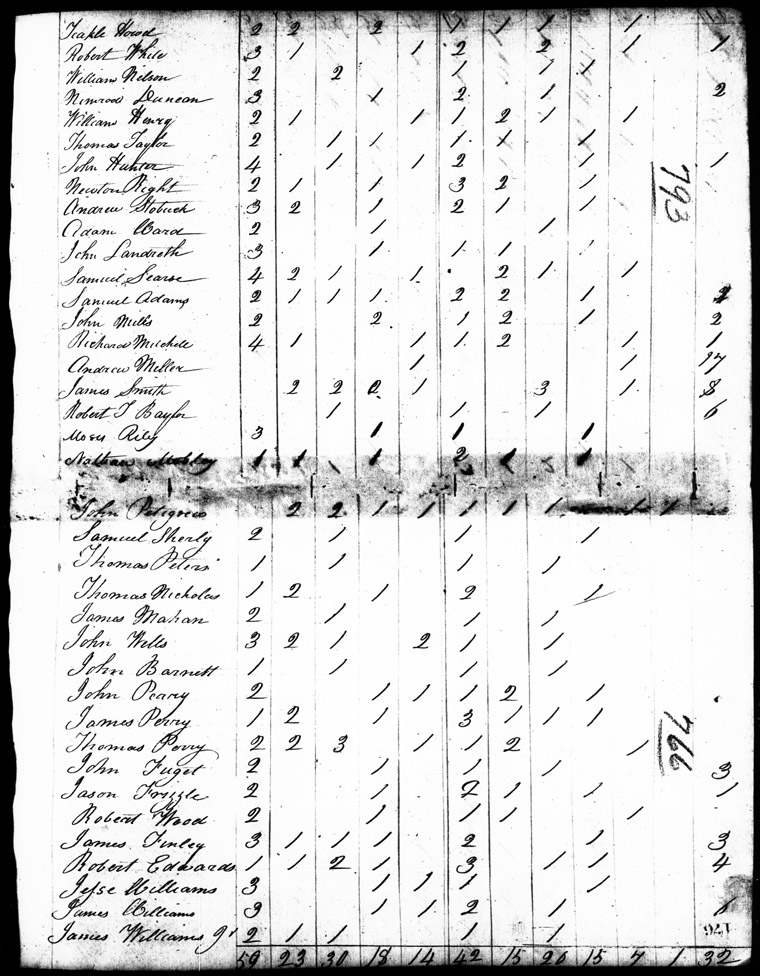 Howd 2 2 2 1 1 1 1
Robert White 3 1 1 2 2 1 1
William Nelson 2 2 1 1 1
Nimrod Duncan 3 1 2 1 2
William Henry 2 1 1 1 2 1 1
Thomas Taylor 2 1 1 1 1 1
John Hunter 4 1 1 2 1 1
Newton Right 2 1 1 3 2 1
793
Andrew 3 2 1 2 1 1
Adam Ward 2 1 1
John Landreth 3 1 1 1 1
Samuel Searse 4 2 1 1 2 1 1
Samuel Adams 2 1 1 1 2 2 1 2
John Mills 2 2 1 2 1 2
Richard Mitchell 4 1 1 1 2 1 1
Andrew Miller 1 1 17
James Smith 2 2 2 1 3 1 8
Robert T Baylor 1 1 1 6
Moses Rily 3 1 1 1
Nathan 1 1 1 2 1 1 1
John 2 2 1 1 1 1 1 1 1
Samuel Sherly 2 1 1 1
Thomas Peters 1 1 1 1
Thomas Nicholas 1 2 1 2 1
James Mahan 2 1 1 1
John Wells 3 2 1 2 1 1
John Barnett 1 1 1 1
John Peary 2 1 1 1 2 1
James Perry 1 2 1 3 1 1 1
766
Thomas Perry 2 2 3 1 1 2 1
John Fuget 2 1 1 1 3
Jason Frizzle 2 1 2 1 1 1
Robert Wood 2 1 1 1 1
James Finley 3 1 1 1 2 1 3
Robert Edwards 1 1 2 1 3 1 1 4
Jesse Williams 3 1 1 1 1
James Williams 3 1 1 2 1 1
James Williams 2 1 1 1 1
59 23 30 18 14 42 15 20 15 7 1 32